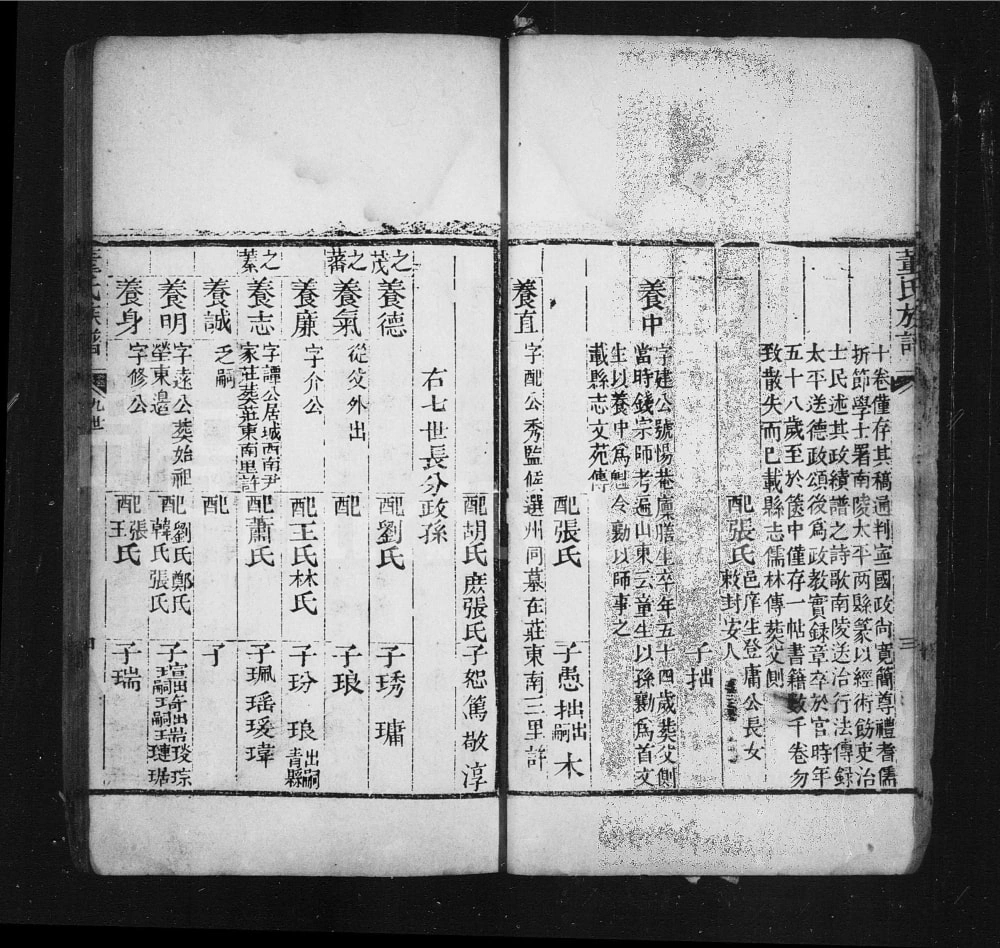 董氏族譜
三
十卷僅存其稿通判寧國政尚寬簡尊禮耆儒
折節學士署南陵太平两縣篆以經術飭吏治
士民述其政績譜之詩歌南陵送治行法傳録
太平送德政頌後爲政教實録章卒於官時年
五十八歲至於篋中僅存一帖書籍數千卷勿
致散失而已載縣志儒林傳葬父側
配張氏邑庠生登庸公長女
敕封安人
子拙
養中
字建公號惕菴廪膳生卒年五十四歲葬父側
當時錢宗師考遍山東云童生以孫勷爲首文
生以養中爲魁令勷以師事之
載縣志文苑傳
配張氏
子悫拙出嗣木
養直
字配公秀監候選州同墓在莊東南三里許
配胡氏庶張氏
子恕篤敬淳
右七世長分政孫
茂之
養德
配劉氏
子琇
鏞
蕃之
養氣
從父外出
配
子琅
養廉
字介公
配王氏林氏
子玢
琅出嗣青縣
蓁之
養志
字譚公居城西南尹
家莊葬莊東南里許
配蕭氏
子珮瑶瑗瑋
養誠
乏嗣
配
子
養明
字遠公葬始祖
塋東邉
配劉氏鄭氏
韓氏張氏
養身
字修公
配張氏
王氏
子瑞
董氏族譜
九世
四